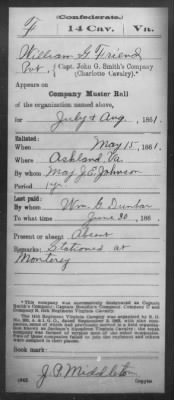 (Confederate.)
F 14 Cav. Va.
William G. Friend
Pvt., Capt. John G. Smith's Company
(Charlotte Cavalry).*
Appears on
Company Muster Roll
of the organization named above,
for July & Aug, 1861.
Enlisted:
When May 15, 1861.
Where Ashland, Va.
By whom Maj. J. E. Johnson
Period 1 yr.
Last paid:
By whom Wm. G. Dunbar
To what time June 30, 1861.
Present or absent Absent
Remarks: Stationed at
Monterey
Book mark:
J. P. Middleton
Copyist.